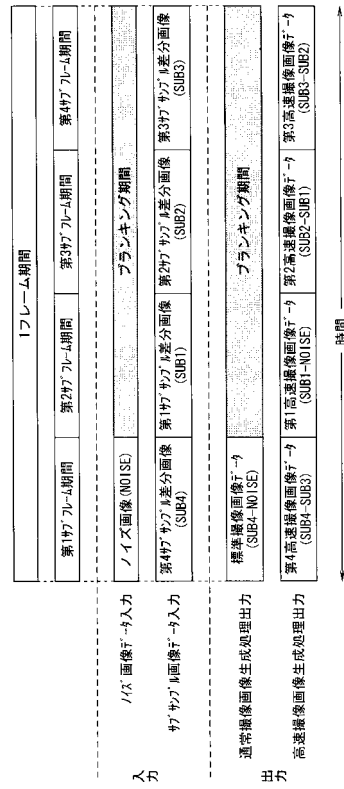 1フレーム期間
第1サブフレーム期間
第2サブフレーム期間
第3サブフレーム期間
第4サブフレーム期間
入力
ノイズ画像データ入力
ノイズ画像(NOISE)
ブランキング期間
サブサンプル画像データ入力
第4サブサンプル差分画像
(SUB4)
第1サブサンプル差分画像
(SUB1)
第2サブサンプル差分画像
(SUB2)
第3サブサンプル差分画像
(SUB3)
出力
通常撮像画像生成処理出力
標準撮像画像データ
(SUB4-NOISE)
ブランキング期間
高速撮像画像生成処理出力
第4高速撮像画像データ
(SUB4-SUB3)
第1高速撮像画像データ
(SUB1-NOISE)
第2高速撮像画像データ
(SUB2-SUB1)
第3高速撮像画像データ
(SUB3-SUB2)
時間